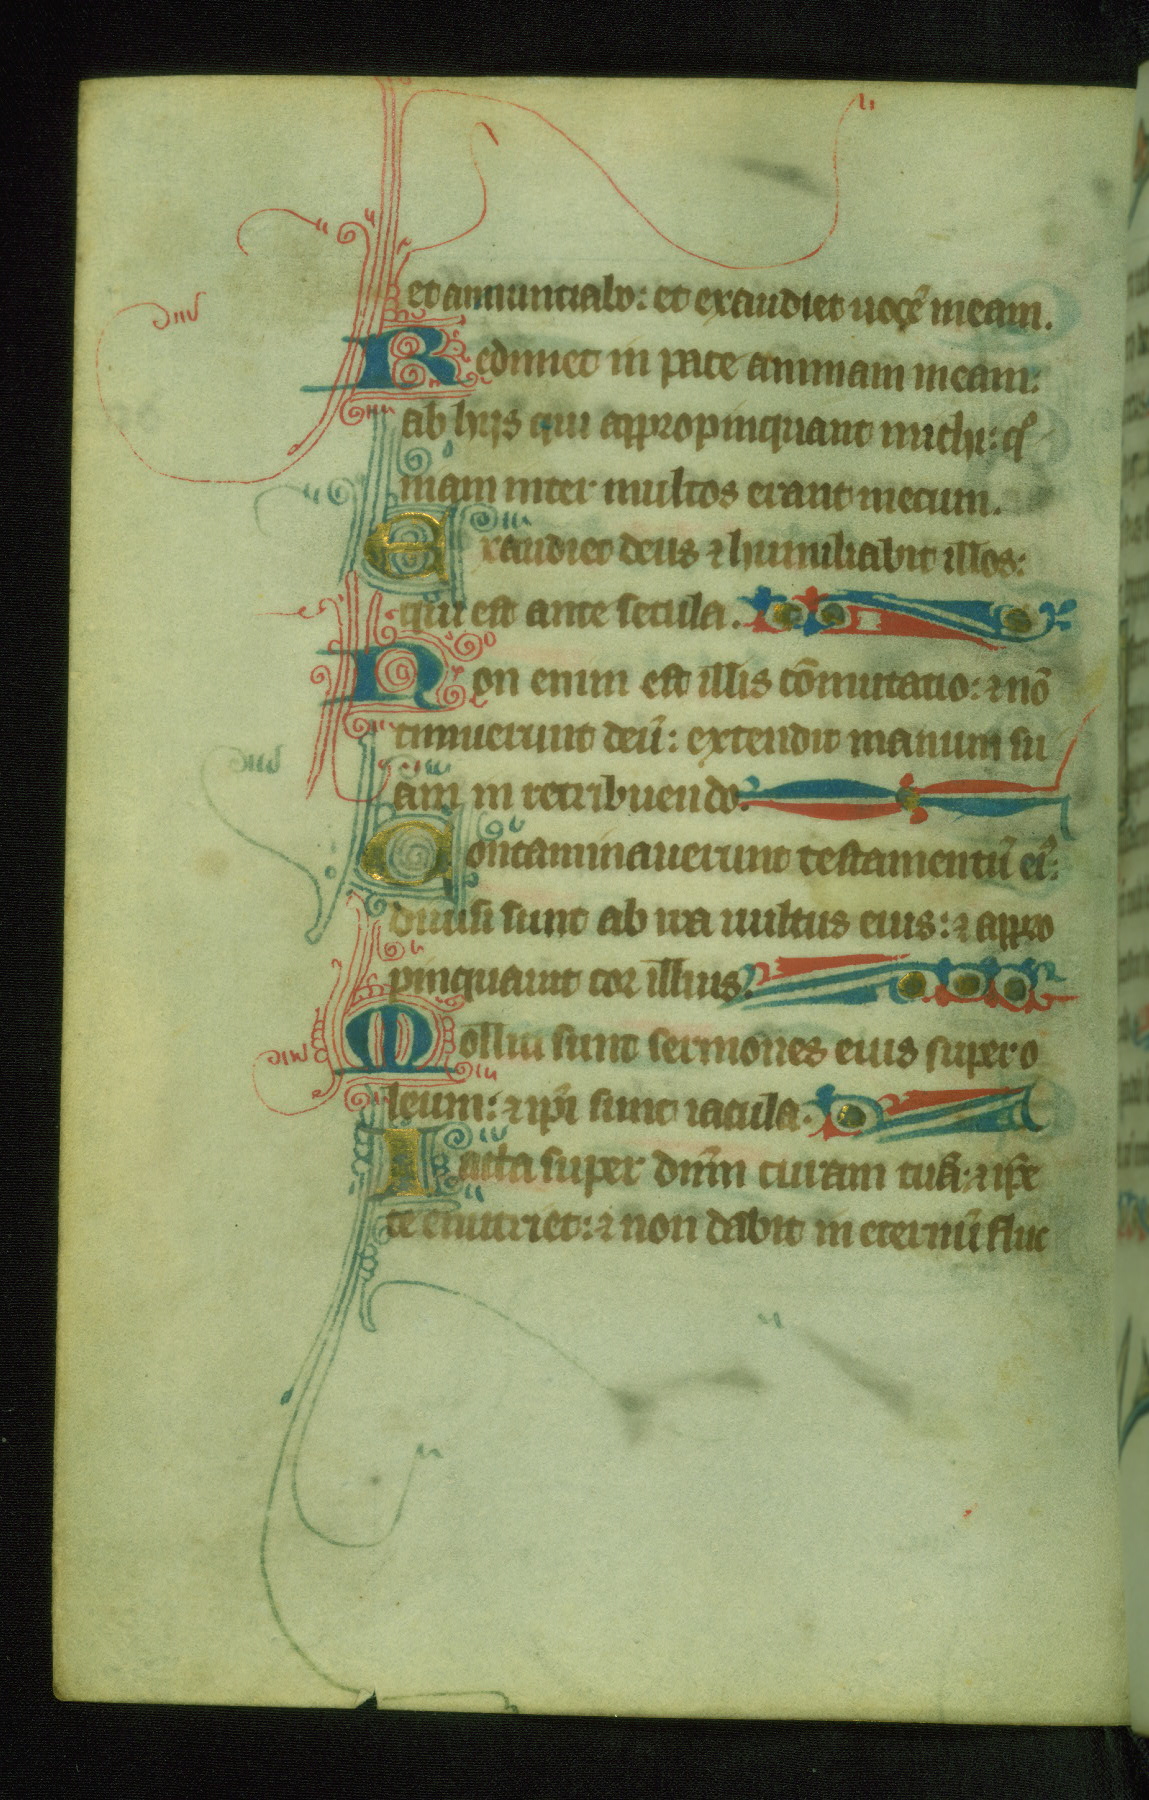 et annuntiabo: et exaudiet uocē meam.
Redimet in pace animam meam:
ab hijs qui appropinquant michi: qͥ
niam inter multos erant mecum.
Exaudiet deus ⁊ humiliabit illos:
qui est ante secula.
Non enim est illis cōmutatio: ⁊ nō
timuerunt deū: extendit manum su
am in retribuendo.
Contaminauerunt testamentū ei᾿:
diuisi sunt ab ira uultus eius: ⁊ appro
pinquauit cor illius.
Molliti sunt sermones eius super o
leum: ⁊ ip̄i sunt iacula.
Iacta super dn̄m curam tuā: ⁊ ip̄e
te enutriet: ⁊ non dabit in eternū fluc